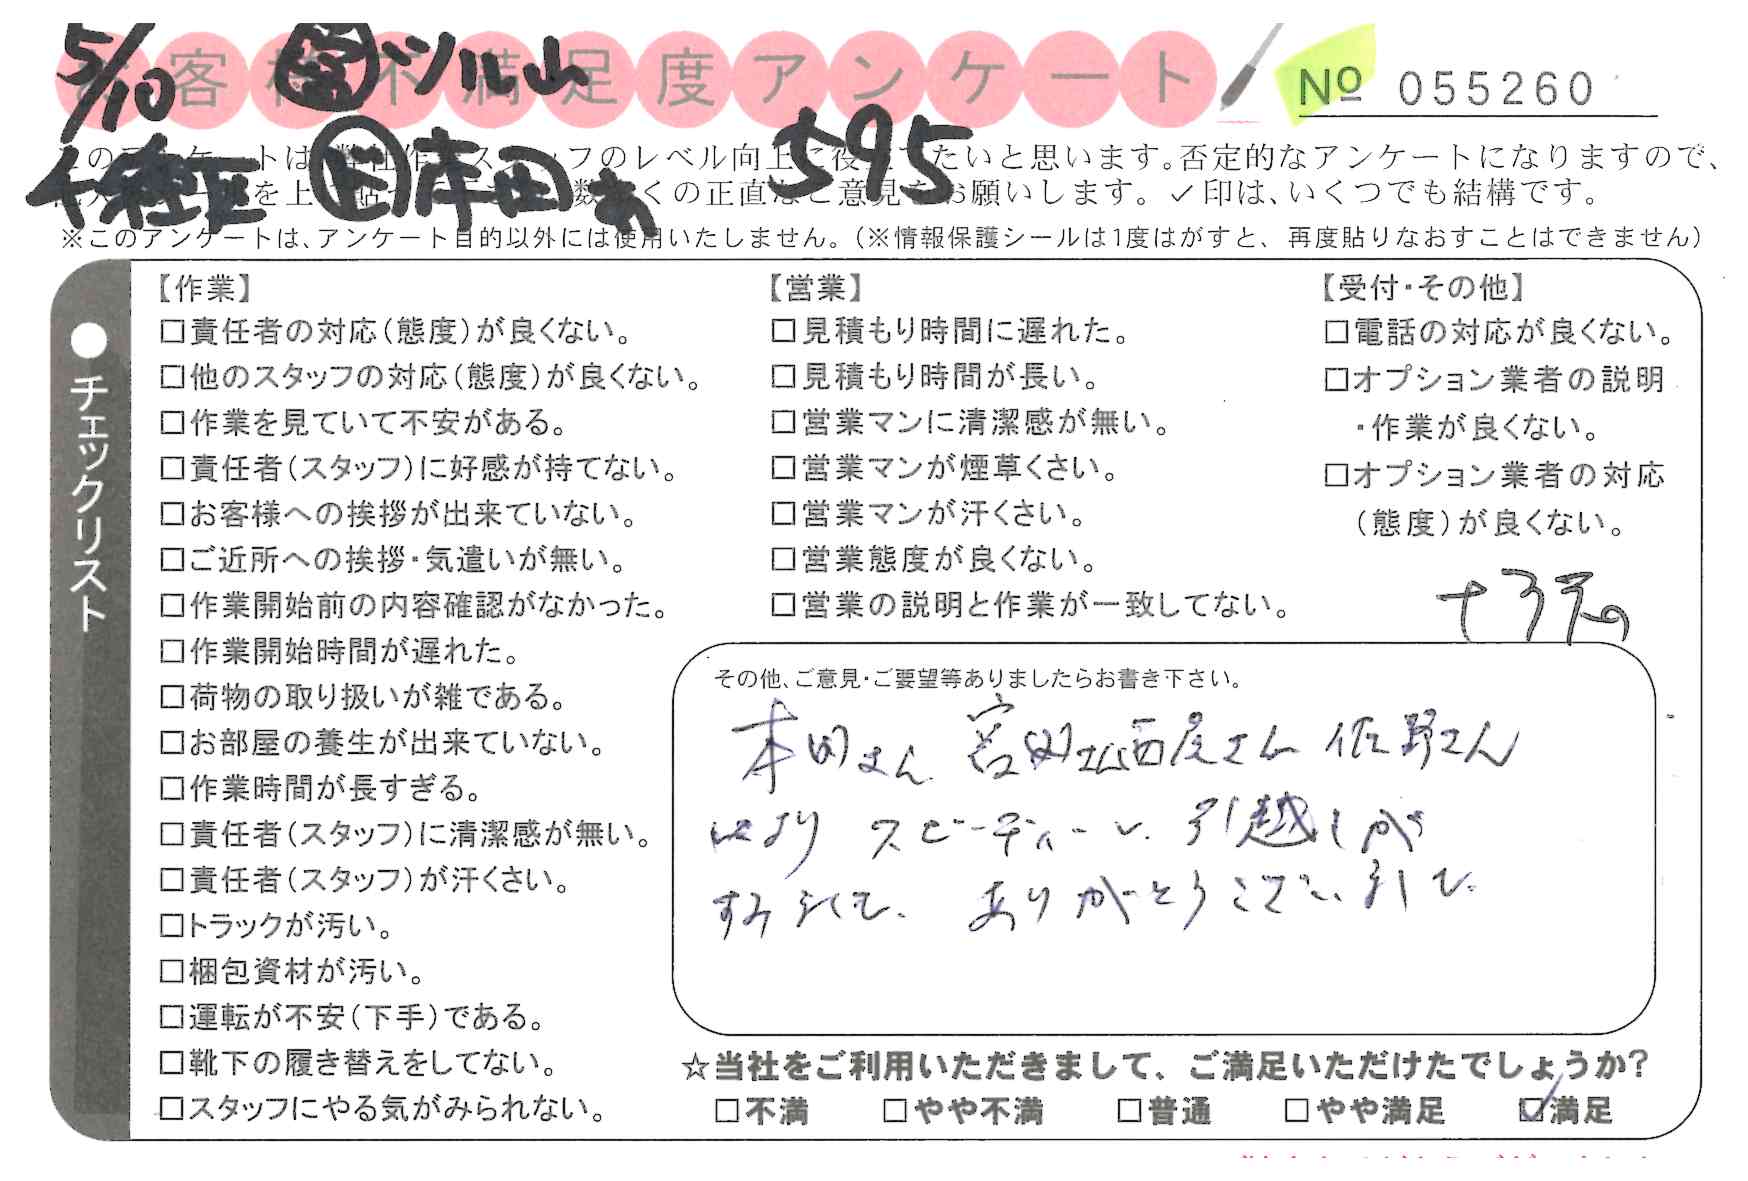 5/10 営 ツル山
お客様不満足度アンケート
№ 055260
千種正 F 本田 595
このアンケートは、弊社作業スタッフのレベル向上に役立てたいと思います。否定的なアンケートになりますので、
数多くの正直なご意見をお願いします。✓印は、いくつでも結構です。
※このアンケートは、アンケート目的以外には使用いたしません。（※情報保護シールは1度はがすと、再度貼りなおすことはできません）
●チェックリスト
【作業】
□責任者の対応（態度）が良くない。
□他のスタッフの対応（態度）が良くない。
□作業を見ていて不安がある。
□責任者（スタッフ）に好感が持てない。
□お客様への挨拶が出来ていない。
□ご近所への挨拶・気遣いが無い。
□作業開始前の内容確認がなかった。
□作業開始時間が遅れた。
□荷物の取り扱いが雑である。
□お部屋の養生が出来ていない。
□作業時間が長すぎる。
□責任者（スタッフ）に清潔感が無い。
□責任者（スタッフ）が汗くさい。
□トラックが汚い。
□梱包資材が汚い。
□運転が不安（下手）である。
□靴下の履き替えをしてない。
□スタッフにやる気がみられない。
【営業】
□見積もり時間に遅れた。
□見積もり時間が長い。
□営業マンに清潔感が無い。
□営業マンが煙草くさい。
□営業マンが汗くさい。
□営業態度が良くない。
□営業の説明と作業が一致してない。
【受付・その他】
□電話の対応が良くない。
□オプション業者の説明
・作業が良くない。
□オプション業者の対応
（態度）が良くない。
その他、ご意見・ご要望等ありましたらお書き下さい。
本田さん 宮田さん西尾さん 佐野さん
により スピーディーに 引越しが
すみました。ありがとうございました。
☆当社をご利用いただきまして、ご満足いただけたでしょうか？
□不満 □やや不満 □普通 □やや満足 ☑満足